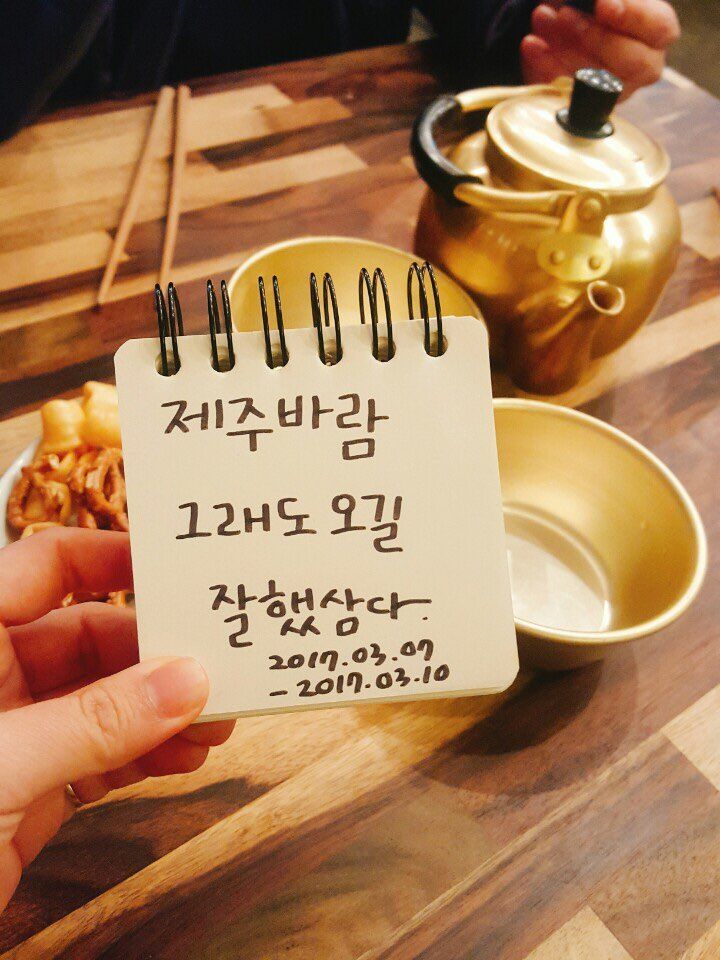 제주바람
그래도 오길
잘했삼다.
2017.03.07
- 2017.03.10